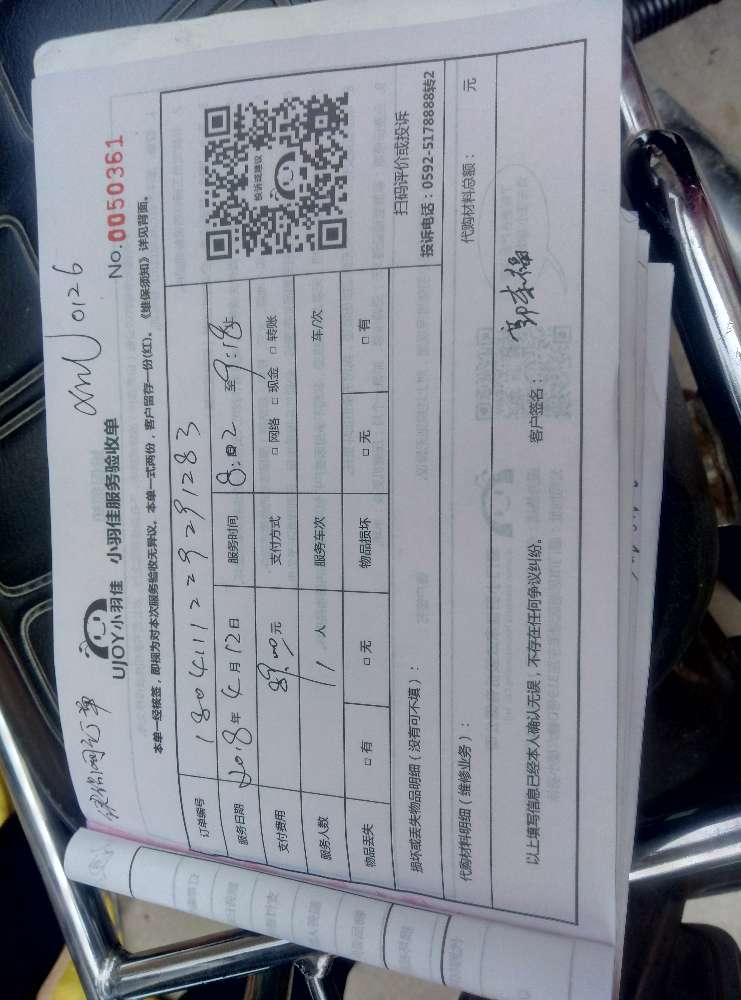 xmJ 0126
UJOY小羽佳 小羽佳服务验收单 No.0050361
本单一经核签，即视为对本次服务验收无异议。本单一式两份，客户留存一份(红)。《维保须知》详见背面。
订单编号 1804111229291283
服务日期 2018年4月12日 服务时间 8:02 至 9:18
支付费用 89.00元 支付方式 □ 网络 □ 现金 □ 转账
服务人数 1 人 服务车次 车/次
物品丢失 □ 有 □ 无 物品损坏 □ 无 □ 有
投诉或建议
扫码评价或投诉
投诉电话：0592-5178888转2
损坏或丢失物品明细（没有可不填）：
代购材料明细（维修业务）： 代购材料总额： 元
以上填写信息已经本人确认无误，不存在任何争议纠纷。 客户签名：